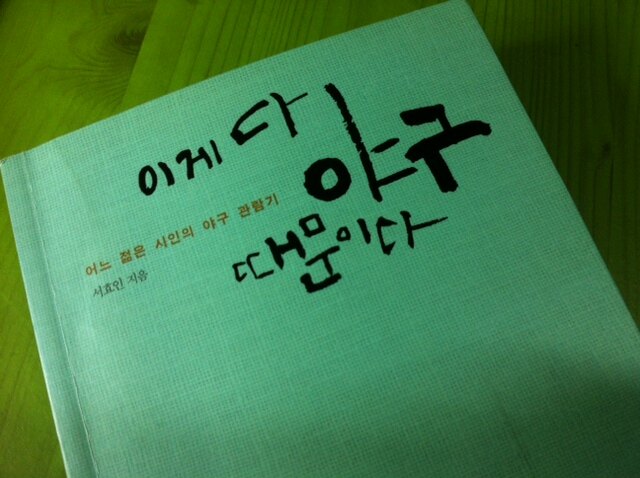 이게 다 야구
때문이다
어느 젊은 시인의 야구 관람기
서효인 지음